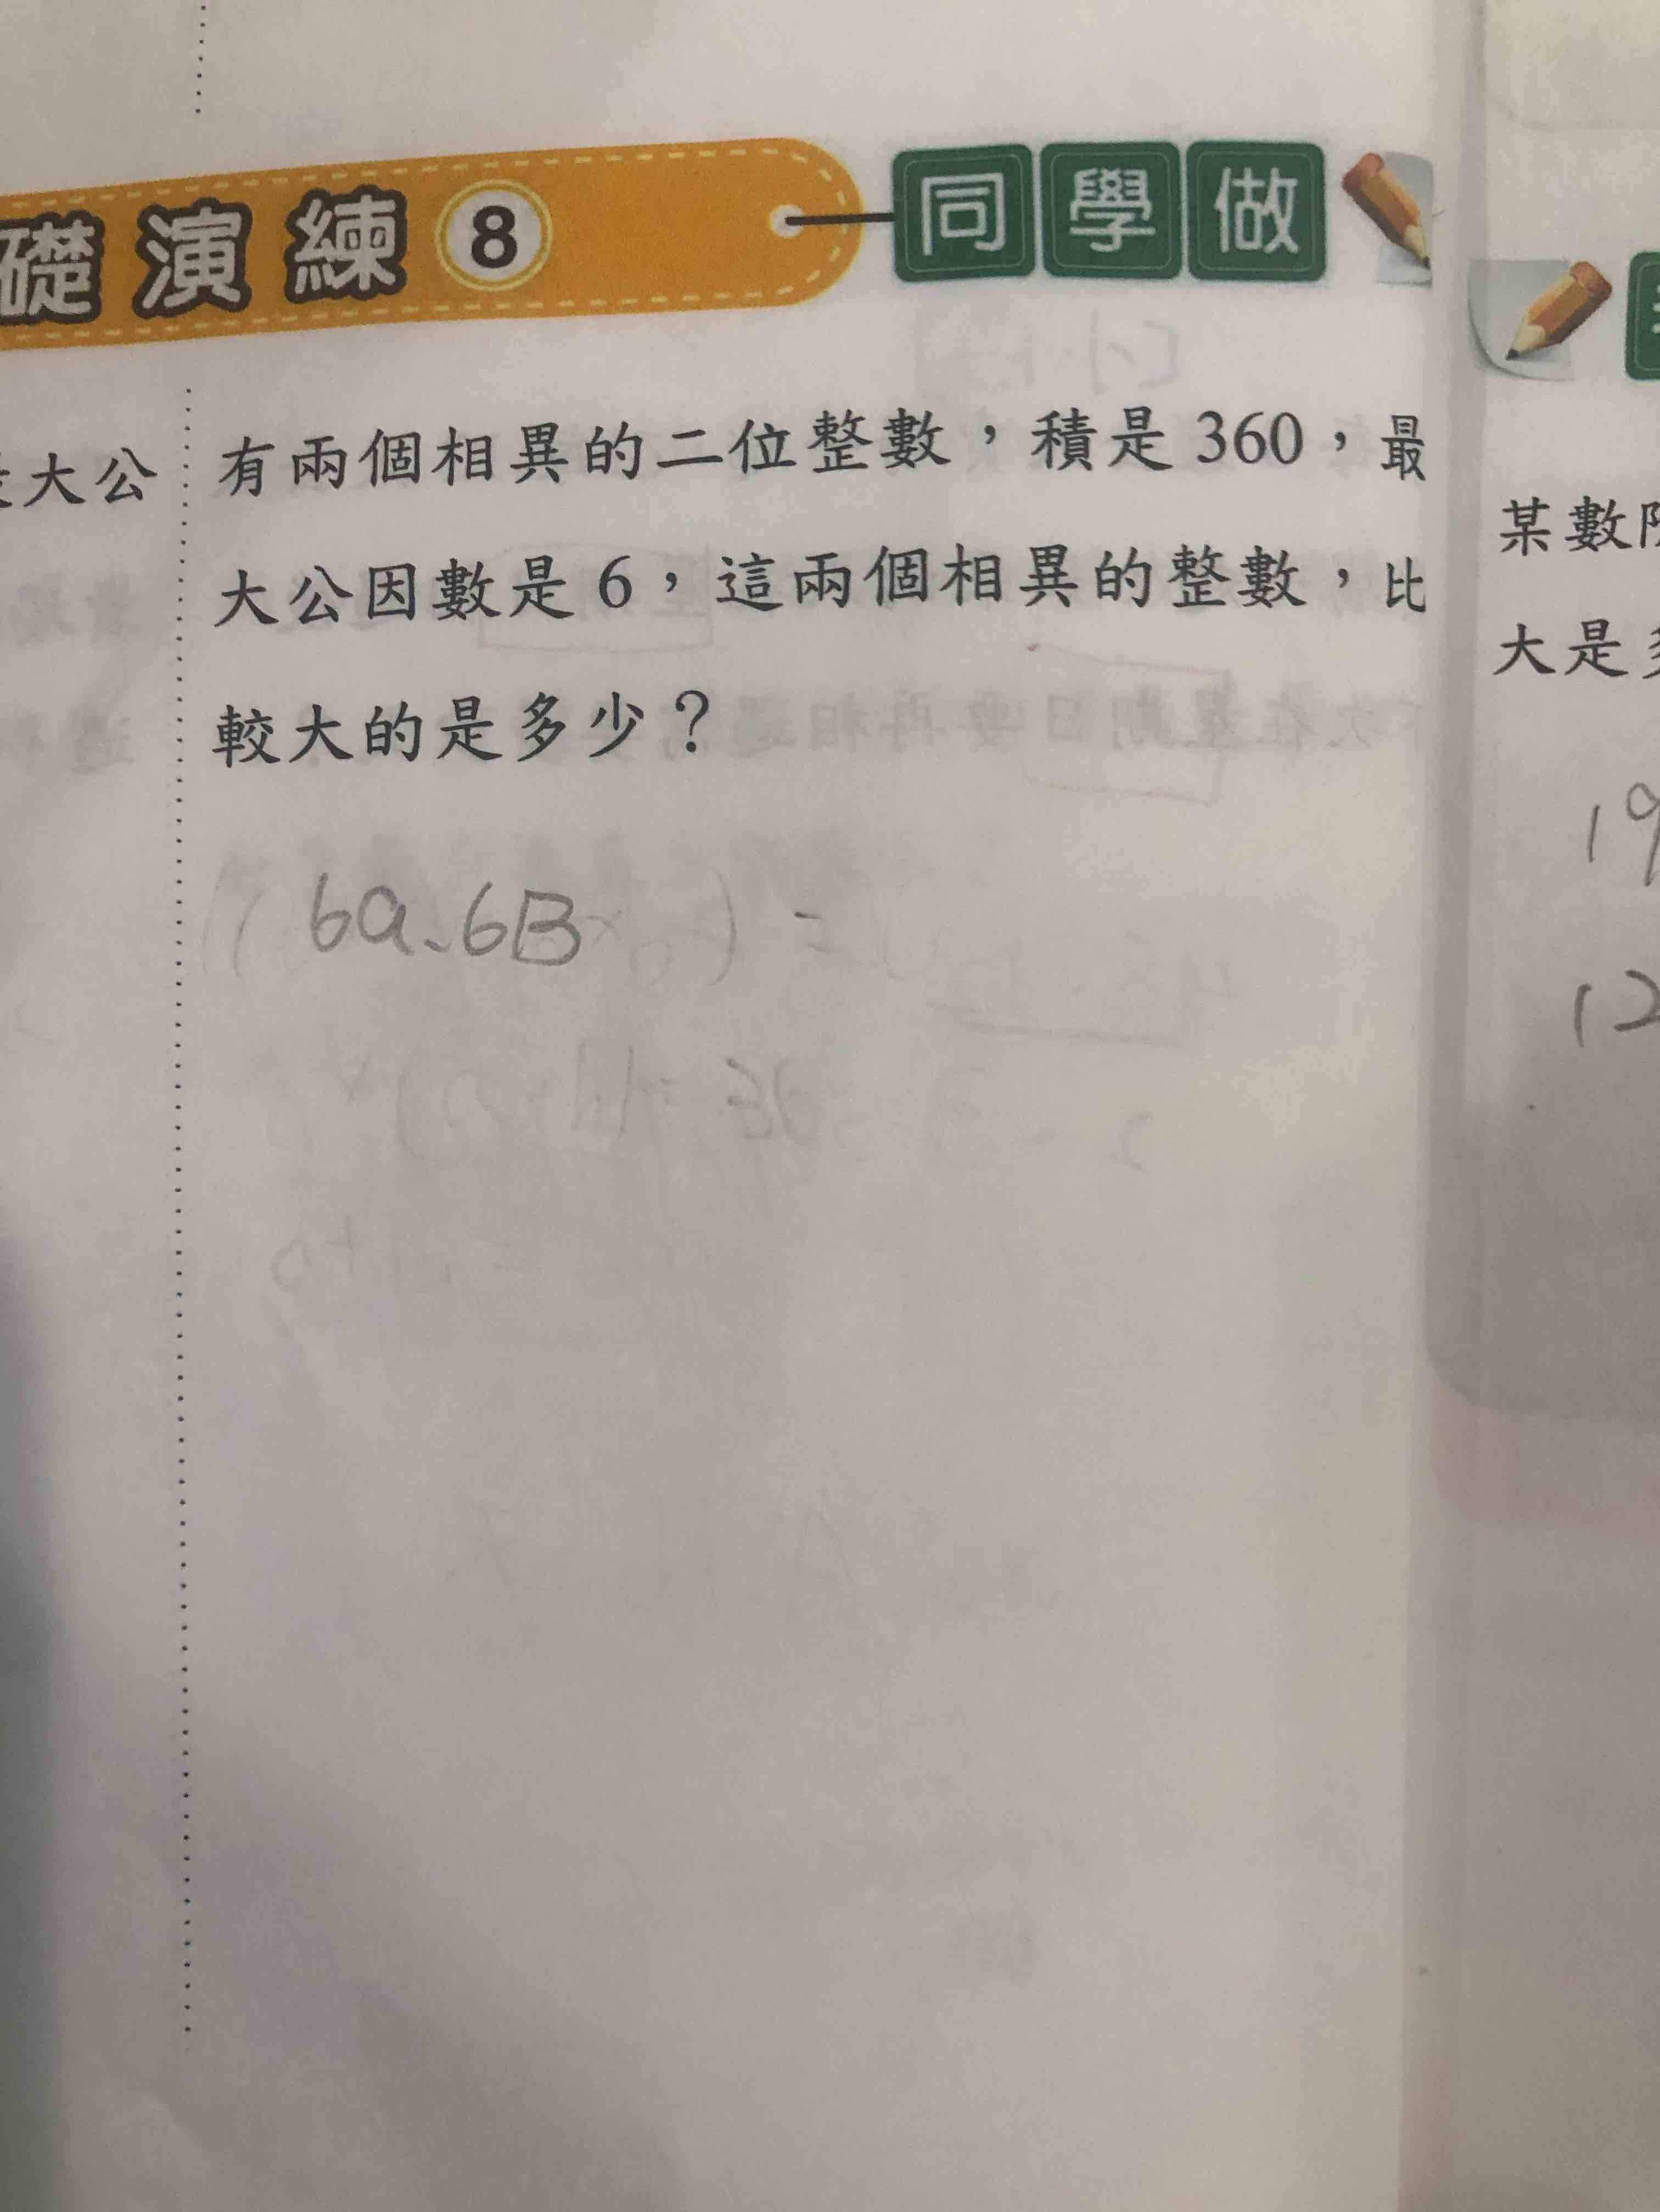 礎演練8 同學做
大公
有兩個相異的二位整數，積是360，最
大公因數是6，這兩個相異的整數，比
較大的是多少？
6a、6B
某數
大是
19
12